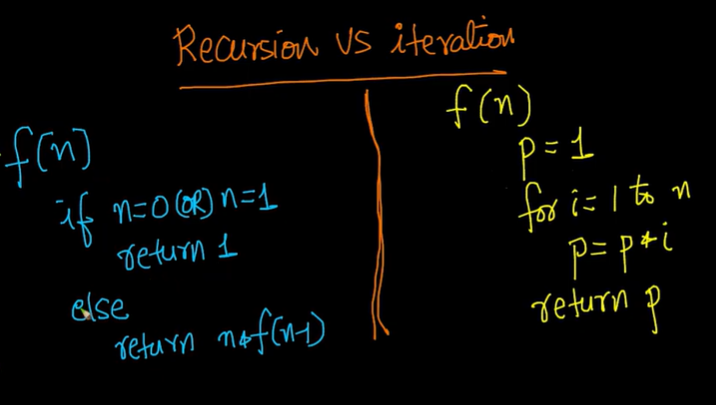 Recursion vs iteration
f(n)
if n=0 (OR) n=1
return 1
else
return n*f(n-1)
f(n)
p=1
for i=1 to n
p=p*i
return p